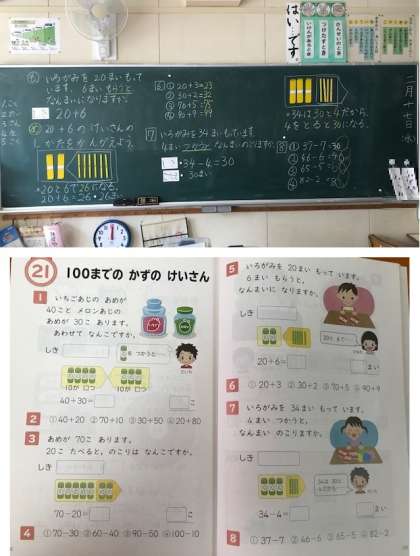 はい、…です。
いろがみを 20まい もって
います。6まい もらうと
なんまいに なりますか。
20+6
20+6 の けいさんの
しかたを かんがえよう。
・20と6で26になる。
20+6=26
6
① 20+3=23
② 30+2=32
③ 70+5=75
④ 90+9=99
7 いろがみを34まいもっています。
4まい つかうと なんまいのこりますか。
34-4=30
30まい
・34は30と4だから、
4をとると30になる。
8
① 37-7=30
② 46-6=40
③ 65-5=
④ 82-2=
21 100までの かずの けいさん
1 いちごあじの あめが
40こと メロンあじの
あめが 30こ あります。
あわせて なんこですか。
しき
を つかうと…
10が □つ 10が □つ
40+30= こ
2 ①40+20 ②70+10 ③30+50 ④20+80
3 あめが 70こ あります。
20こ たべると、のこりは なんこですか。
しき
70-20= こ
4 ①70-30 ②60-40 ③90-50 ④100-10
5 いろがみを 20まい もって います。
6まい もらうと、
なんまいに なりますか。
しき
20と 6で…
20+6= まい
6 ①20+3 ②30+2 ③70+5 ④90+9
7 いろがみを 34まい もって います。
4まい つかうと、
なんまい のこりますか。
しき
34は 30と
4だから…
34-4= まい
8 ①37-7 ②46-6 ③65-5 ④82-2